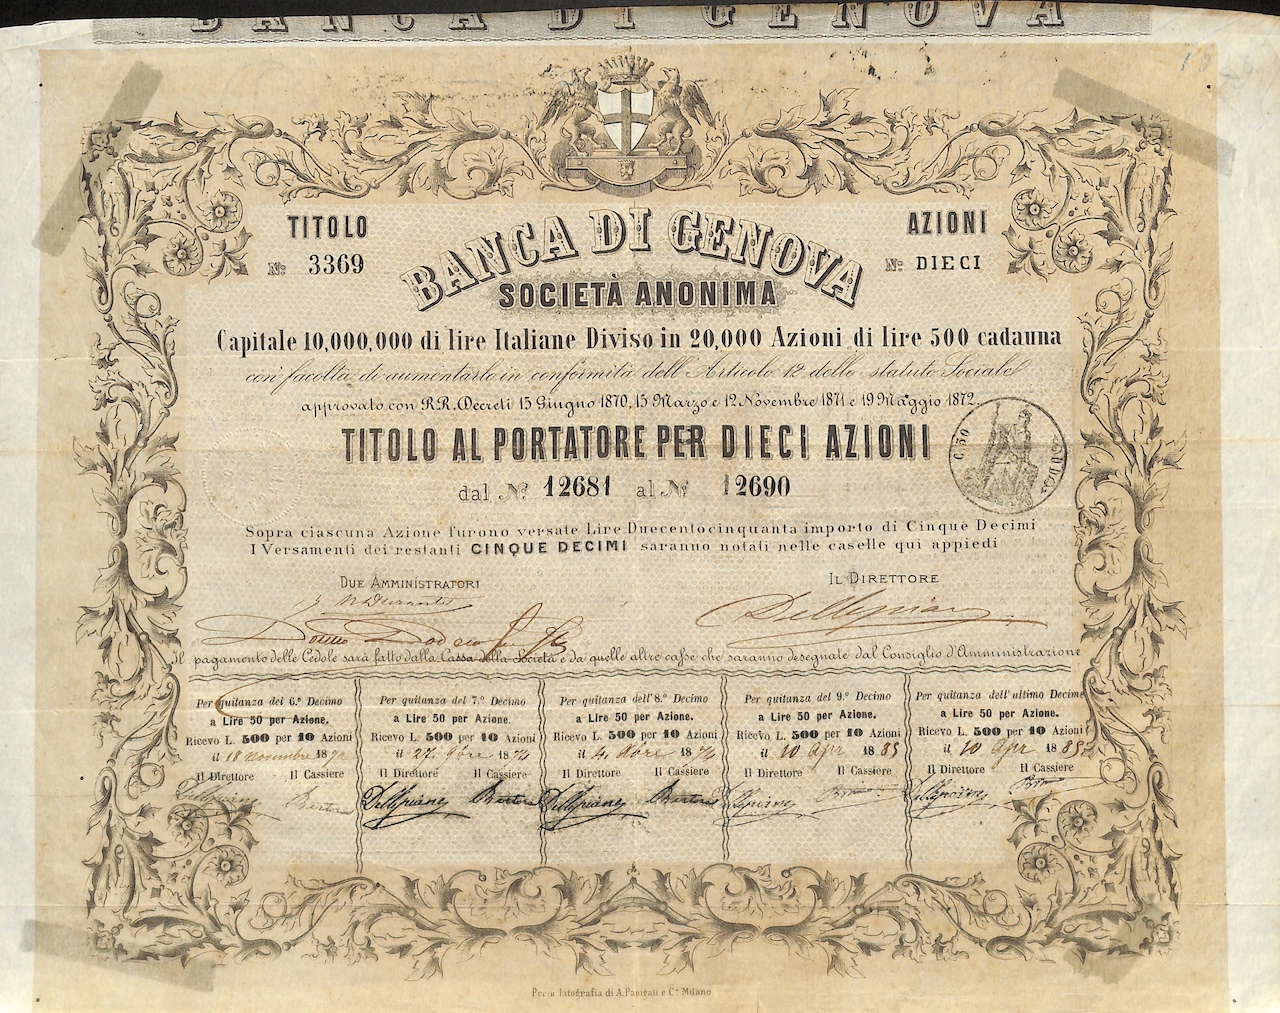 BANCA DI GENOVA
TITOLO
Nº 3369
AZIONI
Nº DIECI
BANCA DI GENOVA
SOCIETÀ ANONIMA
Capitale 10,000,000 di lire Italiane Diviso in 20,000 Azioni di lire 500 cadauna
con facoltà di aumentarlo in conformità dell'Articolo 12 dello statuto Sociale
approvato con R.R. Decreti 15 Giugno 1870, 15 Marzo e 12 Novembre 1871 e 19 Maggio 1872.
TITOLO AL PORTATORE PER DIECI AZIONI
C. 50
dal Nº 12681 al Nº 12690
Sopra ciascuna Azione furono versate Lire Duecentocinquanta importo di Cinque Decimi
I Versamenti dei restanti CINQUE DECIMI saranno notati nelle caselle qui appiedi
DUE AMMINISTRATORI
IL DIRETTORE
Il pagamento delle Cedole sarà fatto dalla Cassa della Società e da quelle altre casse che saranno designate dal Consiglio d'Amministrazione
Per quitanza del 6.º Decimo
a Lire 50 per Azione.
Ricevo L. 500 per 10 Azioni
il 18 18
Il Direttore Il Cassiere
Per quitanza del 7.º Decimo
a Lire 50 per Azione.
Ricevo L. 500 per 10 Azioni
il 27 1874
Il Direttore Il Cassiere
Per quitanza dell'8.º Decimo
a Lire 50 per Azione.
Ricevo L. 500 per 10 Azioni
il 4 1874
Il Direttore Il Cassiere
Per quitanza del 9.º Decimo
a Lire 50 per Azione.
Ricevo L. 500 per 10 Azioni
il 10 apr 1885
Il Direttore Il Cassiere
Per quitanza dell'ultimo Decimo
a Lire 50 per Azione.
Ricevo L. 500 per 10 Azioni
il 10 apr 1885
Il Direttore Il Cassiere
Litografia di A. Panigati e C.º Milano